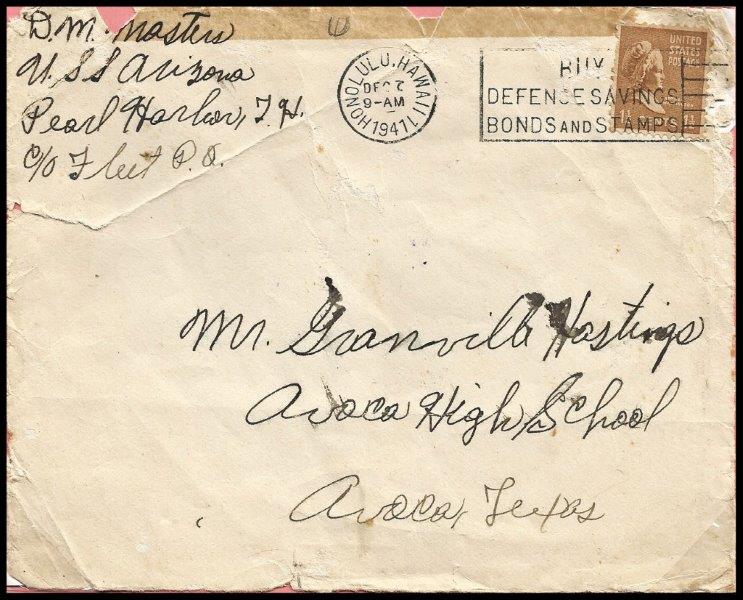 D. M. Masters
U S S Arizona
Pearl Harbor, T. H.
C/O Fleet P. O.
HONOLULU, HAWAII
DEC
9-AM
1941
BUY
DEFENSE SAVINGS
BONDS AND STAMPS
UNITED
STATES
POSTAGE
Mr. Granville Hastings
Avoca High School
Avoca, Texas